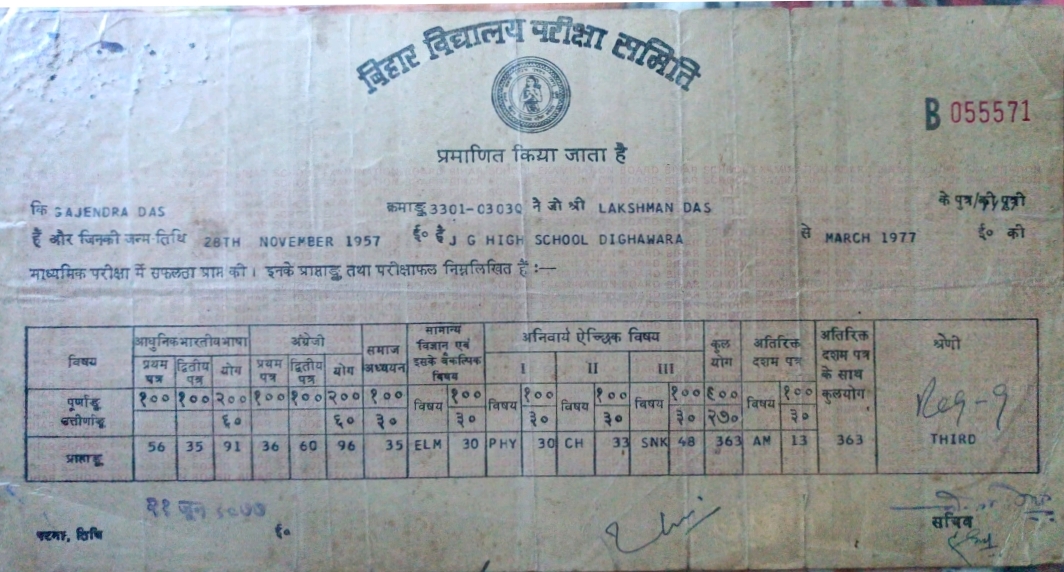 बिहार विद्यालय परीक्षा समिति
B 055571
प्रमाणित किया जाता है
कि GAJENDRA DAS क्रमाङ्क 3301-03030 ने जो श्री LAKSHMAN DAS के पुत्र/की पुत्री
हैं और जिनकी जन्म-तिथि 28TH NOVEMBER 1957 ई० है J G HIGH SCHOOL DIGHAWARA से MARCH 1977 ई० की
माध्यमिक परीक्षा में सफलता प्राप्त की। इनके प्राप्ताङ्क तथा परीक्षाफल निम्नलिखित हैं :—
विषय आधुनिक भारतीय भाषा अंग्रेजी समाज अध्ययन सामान्य विज्ञान एवं इसके वैकल्पिक विषय अनिवार्य ऐच्छिक विषय कुल योग अतिरिक्त दशम पत्र अतिरिक्त दशम पत्र के साथ कुलयोग श्रेणी
प्रथम पत्र द्वितीय पत्र योग प्रथम पत्र द्वितीय पत्र योग I II III
पूर्णाङ्क १०० १०० २०० १०० १०० २०० १०० विषय १०० विषय १०० विषय १०० विषय १०० ६०० विषय १००
उत्तीर्णाङ्क ६० ६० ३० ३० ३० ३० ३० २७० ३०
Reg-9
प्राप्ताङ्क 56 35 91 36 60 96 35 ELM 30 PHY 30 CH 33 SNK 48 363 AM 13 363 THIRD
२१ जून १९७७
पटना, तिथि ई०
सचिव